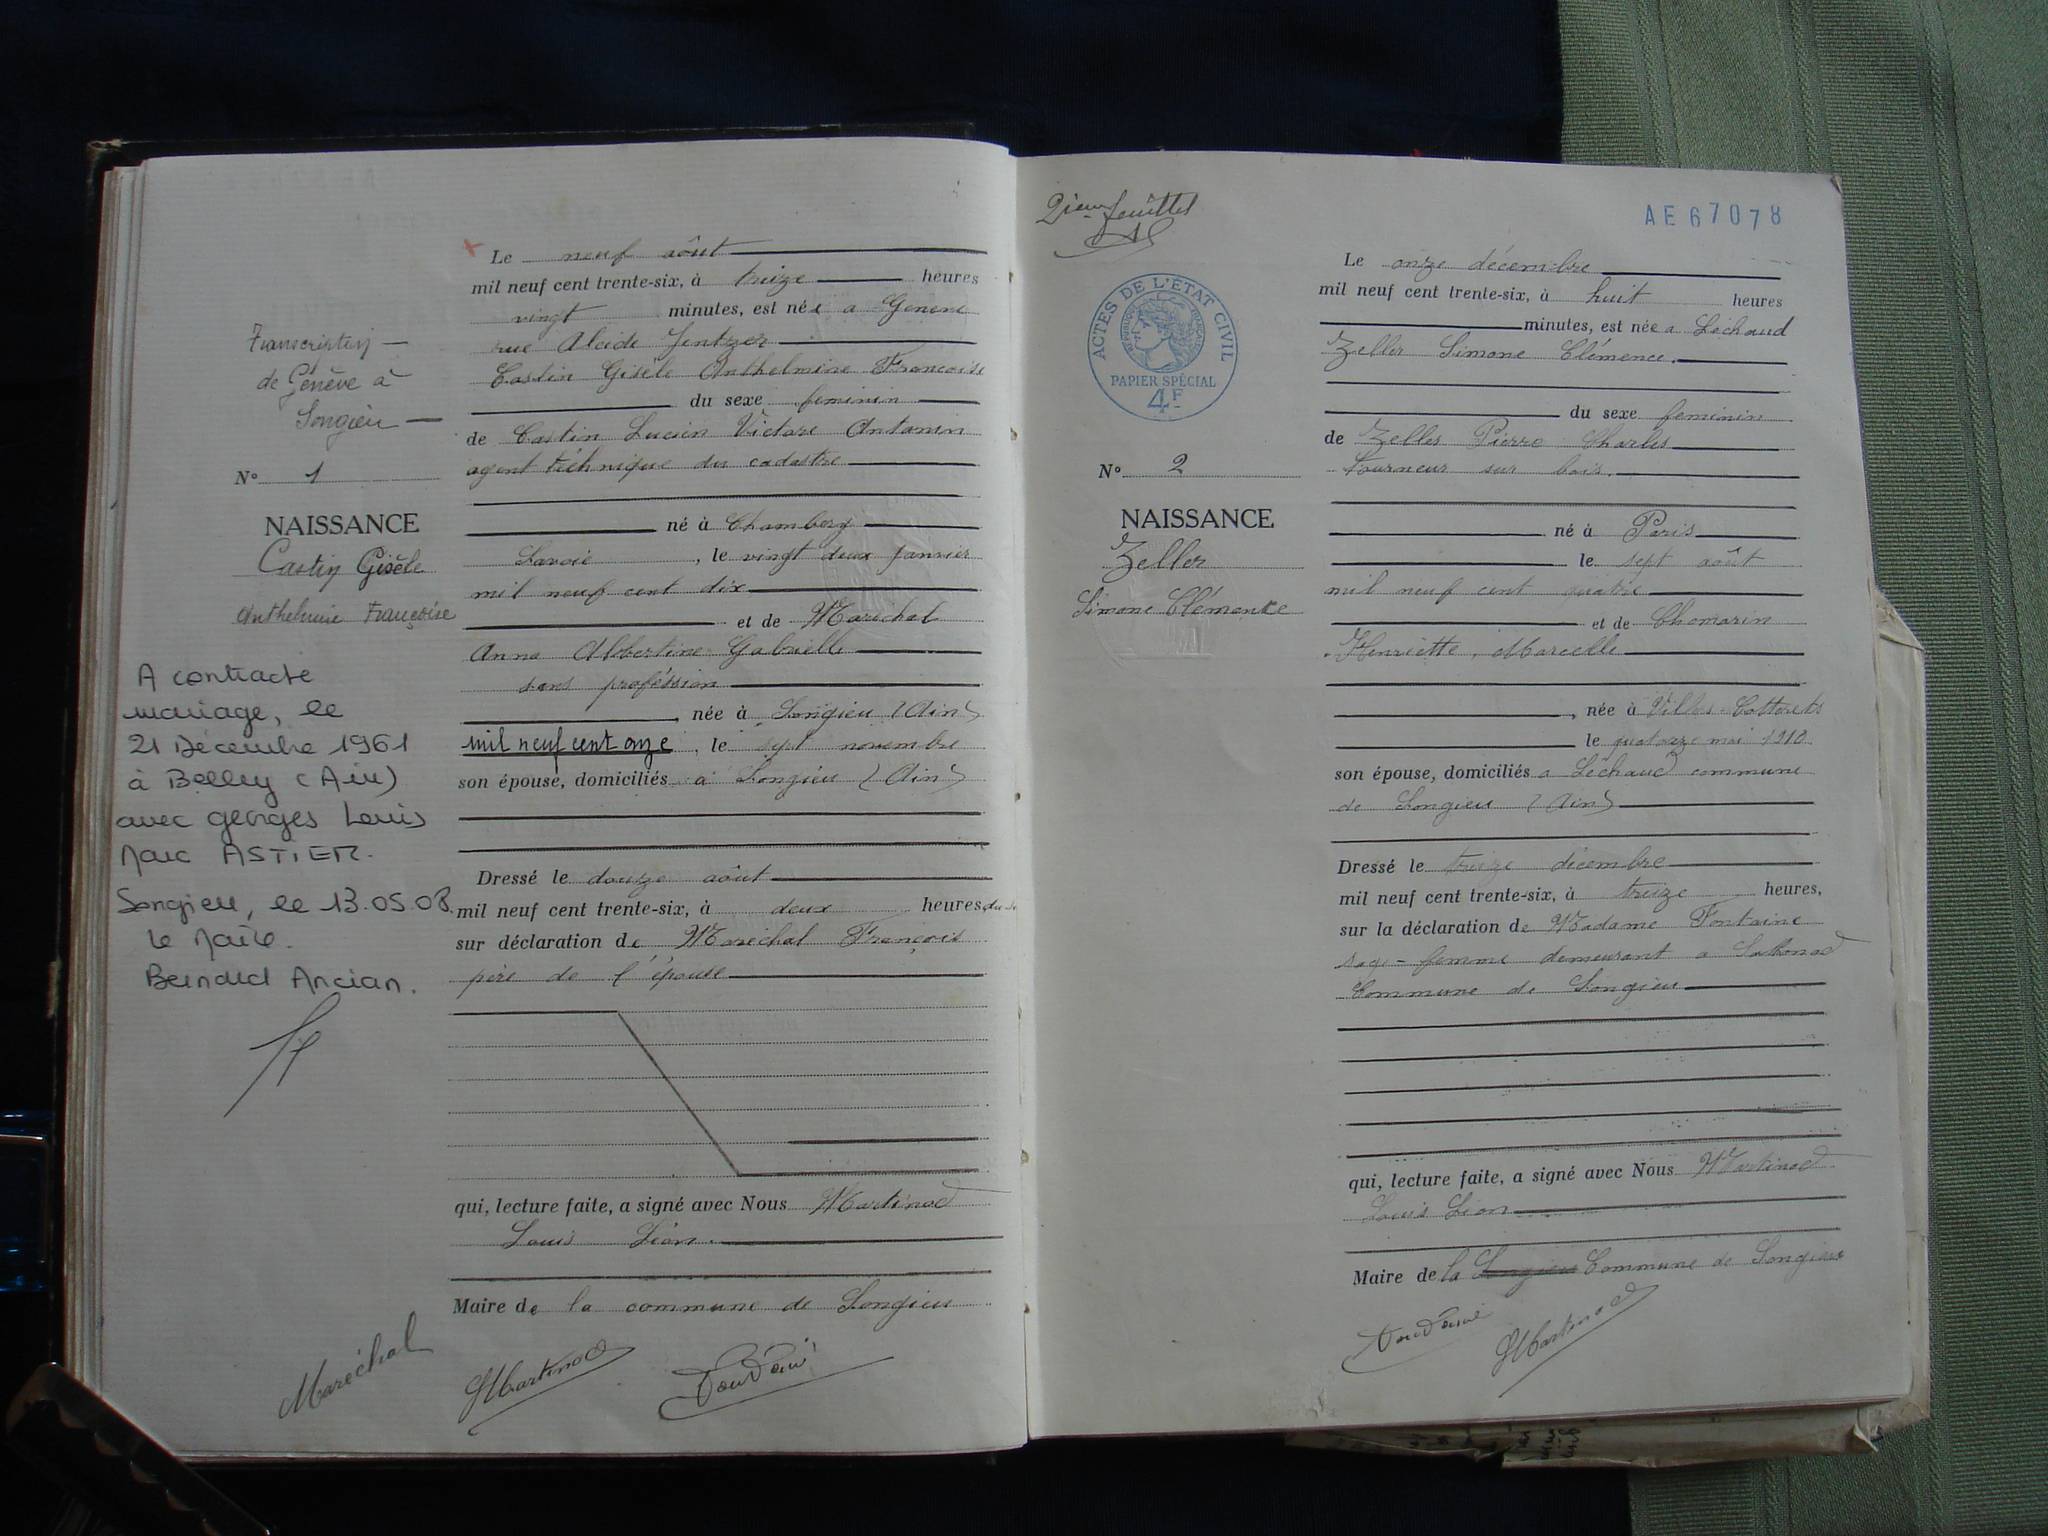 Le neuf août
mil neuf cent trente-six, à treize heures
vingt minutes, est née a Genève
rue Alcide Jentzer
Castin Gisèle Anthelmine Françoise
du sexe feminin
de Castin Lucien Victore Antonin
agent téchnique du cadastre
né à Chambery
Savoie, le vingt deux Janvier
mil neuf cent dix
et de Maréchal
Anna Albertine Gabrielle
sans proféssion
, née à Songieu (Ain)
mil neuf cent onze, le sept novembre
son épouse, domiciliés à Songieu (Ain)
Dressé le douze août
mil neuf cent trente-six, à deux heures
sur déclaration de Maréchal François
père de l'épouse
qui, lecture faite, a signé avec Nous Martinod
Louis Léon.
Maire de la commune de Songieu
Transcription
de Génève à
Songieu
N° 1
NAISSANCE
Castin Gisèle
Anthelmine Françoise
A contracté
mariage, le
21 Décembre 1961
à Belley (Ain)
avec georges Louis
Marc ASTIER.
Songieu, le 13.05.08.
le Maire.
Bernard Ancian.
Maréchal
Martinod
2ieme feuillet
AE67078
ACTES DE L'ÉTAT CIVIL
RÉPUBLIQUE FRANÇAISE
PAPIER SPÉCIAL
4F
N° 2
NAISSANCE
Zeller
Simone Clémence
Le onze décembre
mil neuf cent trente-six, à huit heures
minutes, est née a Léchaud
Zeller Simone Clémence.
du sexe feminin
de Zeller Pierre Charles
tourneur sur bois.
né à Paris
le sept août
mil neuf cent quatre
et de Chomarin
Henriette, Marcelle
, née à Villes-Cotterets
le quatorze mai 1910
son épouse, domiciliés a Léchaud commune
de Songieu (Ain)
Dressé le treize décembre
mil neuf cent trente-six, à treize heures,
sur la déclaration de Madame Fontaine
sage-femme demeurant a Sothonod
Commune de Songieu
qui, lecture faite, a signé avec Nous Martinod
Louis Léon
Maire de la Songieu Commune de Songieu
Martinod